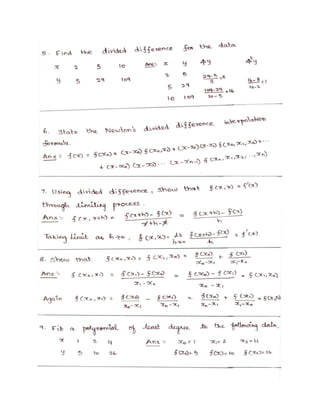 5. Find the divided difference for the data
x 2 5 10 Ans:- x y Δy Δ²y
y 5 29 109 2 5 (29-5)/3 = 8
5 29 (8-8)/(10-2) = 1
(109-29)/(10-5) = 16
10 109
6. State the Newton's divided difference interpolation
formula.
Ans:- f(x) = f(x₀) + (x-x₀) f(x₀,x₁) + (x-x₀)(x-x₁) f(x₀,x₁,x₂)+...
+ (x-x₀) (x-x₁)... (x-xₙ₋₁) f(x₀,x₁,x₂,...,xₙ)
7. Using divided difference, show that f(x,x) = f'(x)
through limiting process.
Ans:- f(x, x+h) = (f(x+h) - f(x))/(x+h-x) = (f(x+h) - f(x))/h
Taking limit as h→0, f(x,x) = Lt h→0 (f(x+h) - f(x))/h = f'(x)
8. Show that f(x₀,x₁) = f(x₁,x₀) = f(x₀)/(x₀-x₁) + f(x₁)/(x₁-x₀)
Ans:- f(x₀,x₁) = (f(x₁) - f(x₀))/(x₁-x₀) = (f(x₀) - f(x₁))/(x₀-x₁) = f(x₁,x₀)
Again f(x₀,x₁) = f(x₀)/(x₀-x₁) - f(x₁)/(x₀-x₁) = f(x₀)/(x₀-x₁) + f(x₁)/(x₁-x₀) =
9. Fit a polynomial of least degree to the following data.
x 1 2 4 Ans:- x₀=1 x₁=2 x₂=4
y 5 10 26 f(x₀)=5 f(x₁)=10 f(x₂)=26